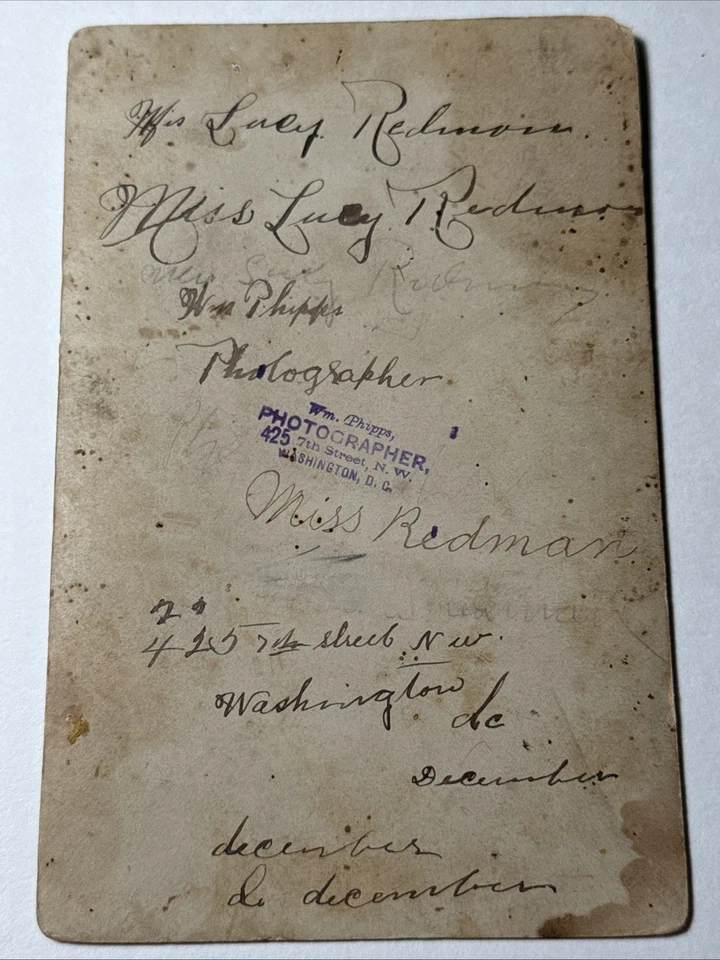 Miss Lucy Redmon.
Miss Lucy Redmon
Lucy Redmon
Wm Phipps
Photographer
Wm. Phipps,
PHOTOGRAPHER,
425 7th Street, N. W.
WASHINGTON, D. C.
Miss Redman
425 7th street N w.
Washington
dc
December
december
d. december